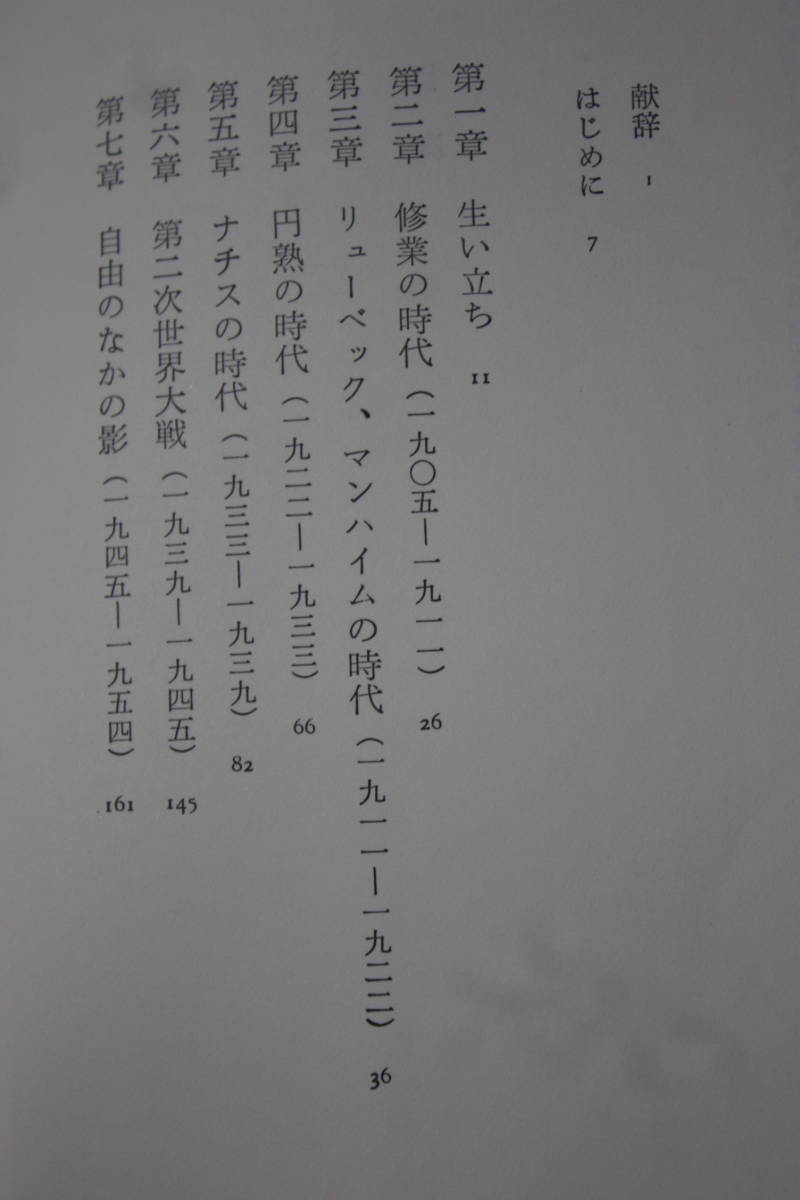 献辞 1
はじめに 7
第一章 生い立ち 11
第二章 修業の時代(一九〇五―一九一一) 26
第三章 リューベック、マンハイムの時代(一九一一―一九二二) 36
第四章 円熟の時代(一九二二―一九三三) 66
第五章 ナチスの時代(一九三三―一九三九) 82
第六章 第二次世界大戦(一九三九―一九四五) 145
第七章 自由のなかの影(一九四五―一九五四) 161